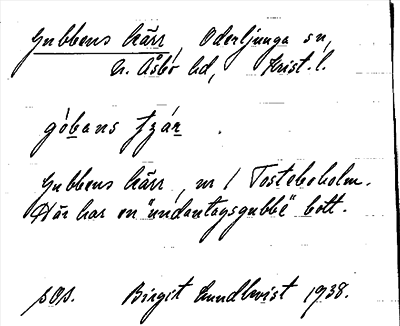 Gubbens kärr, Oderljunga sn,
N. Åsbo hd, Krist. l.
góbans tzár.
Gubbens kärr, nr 1 Tosteboholm.
Där har en "undantagsgubbe" bott.
SOA. Birgit Lundkvist 1938.